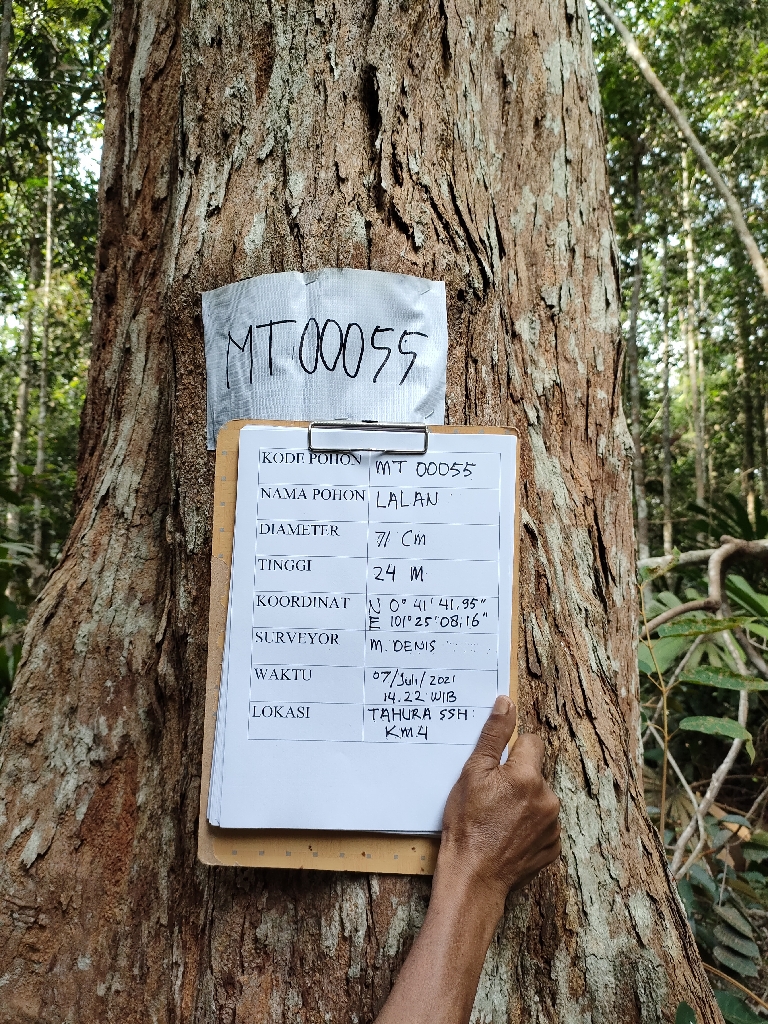 MT 00055
KODE POHON MT 00055
NAMA POHON LALAN
DIAMETER 71 Cm
TINGGI 24 M
KOORDINAT N 0° 41' 41.95"
E 101° 25' 08,16"
SURVEYOR M. DENIS
WAKTU 07/Juli/2021
14.22 WIB
LOKASI TAHURA SSH
KM4